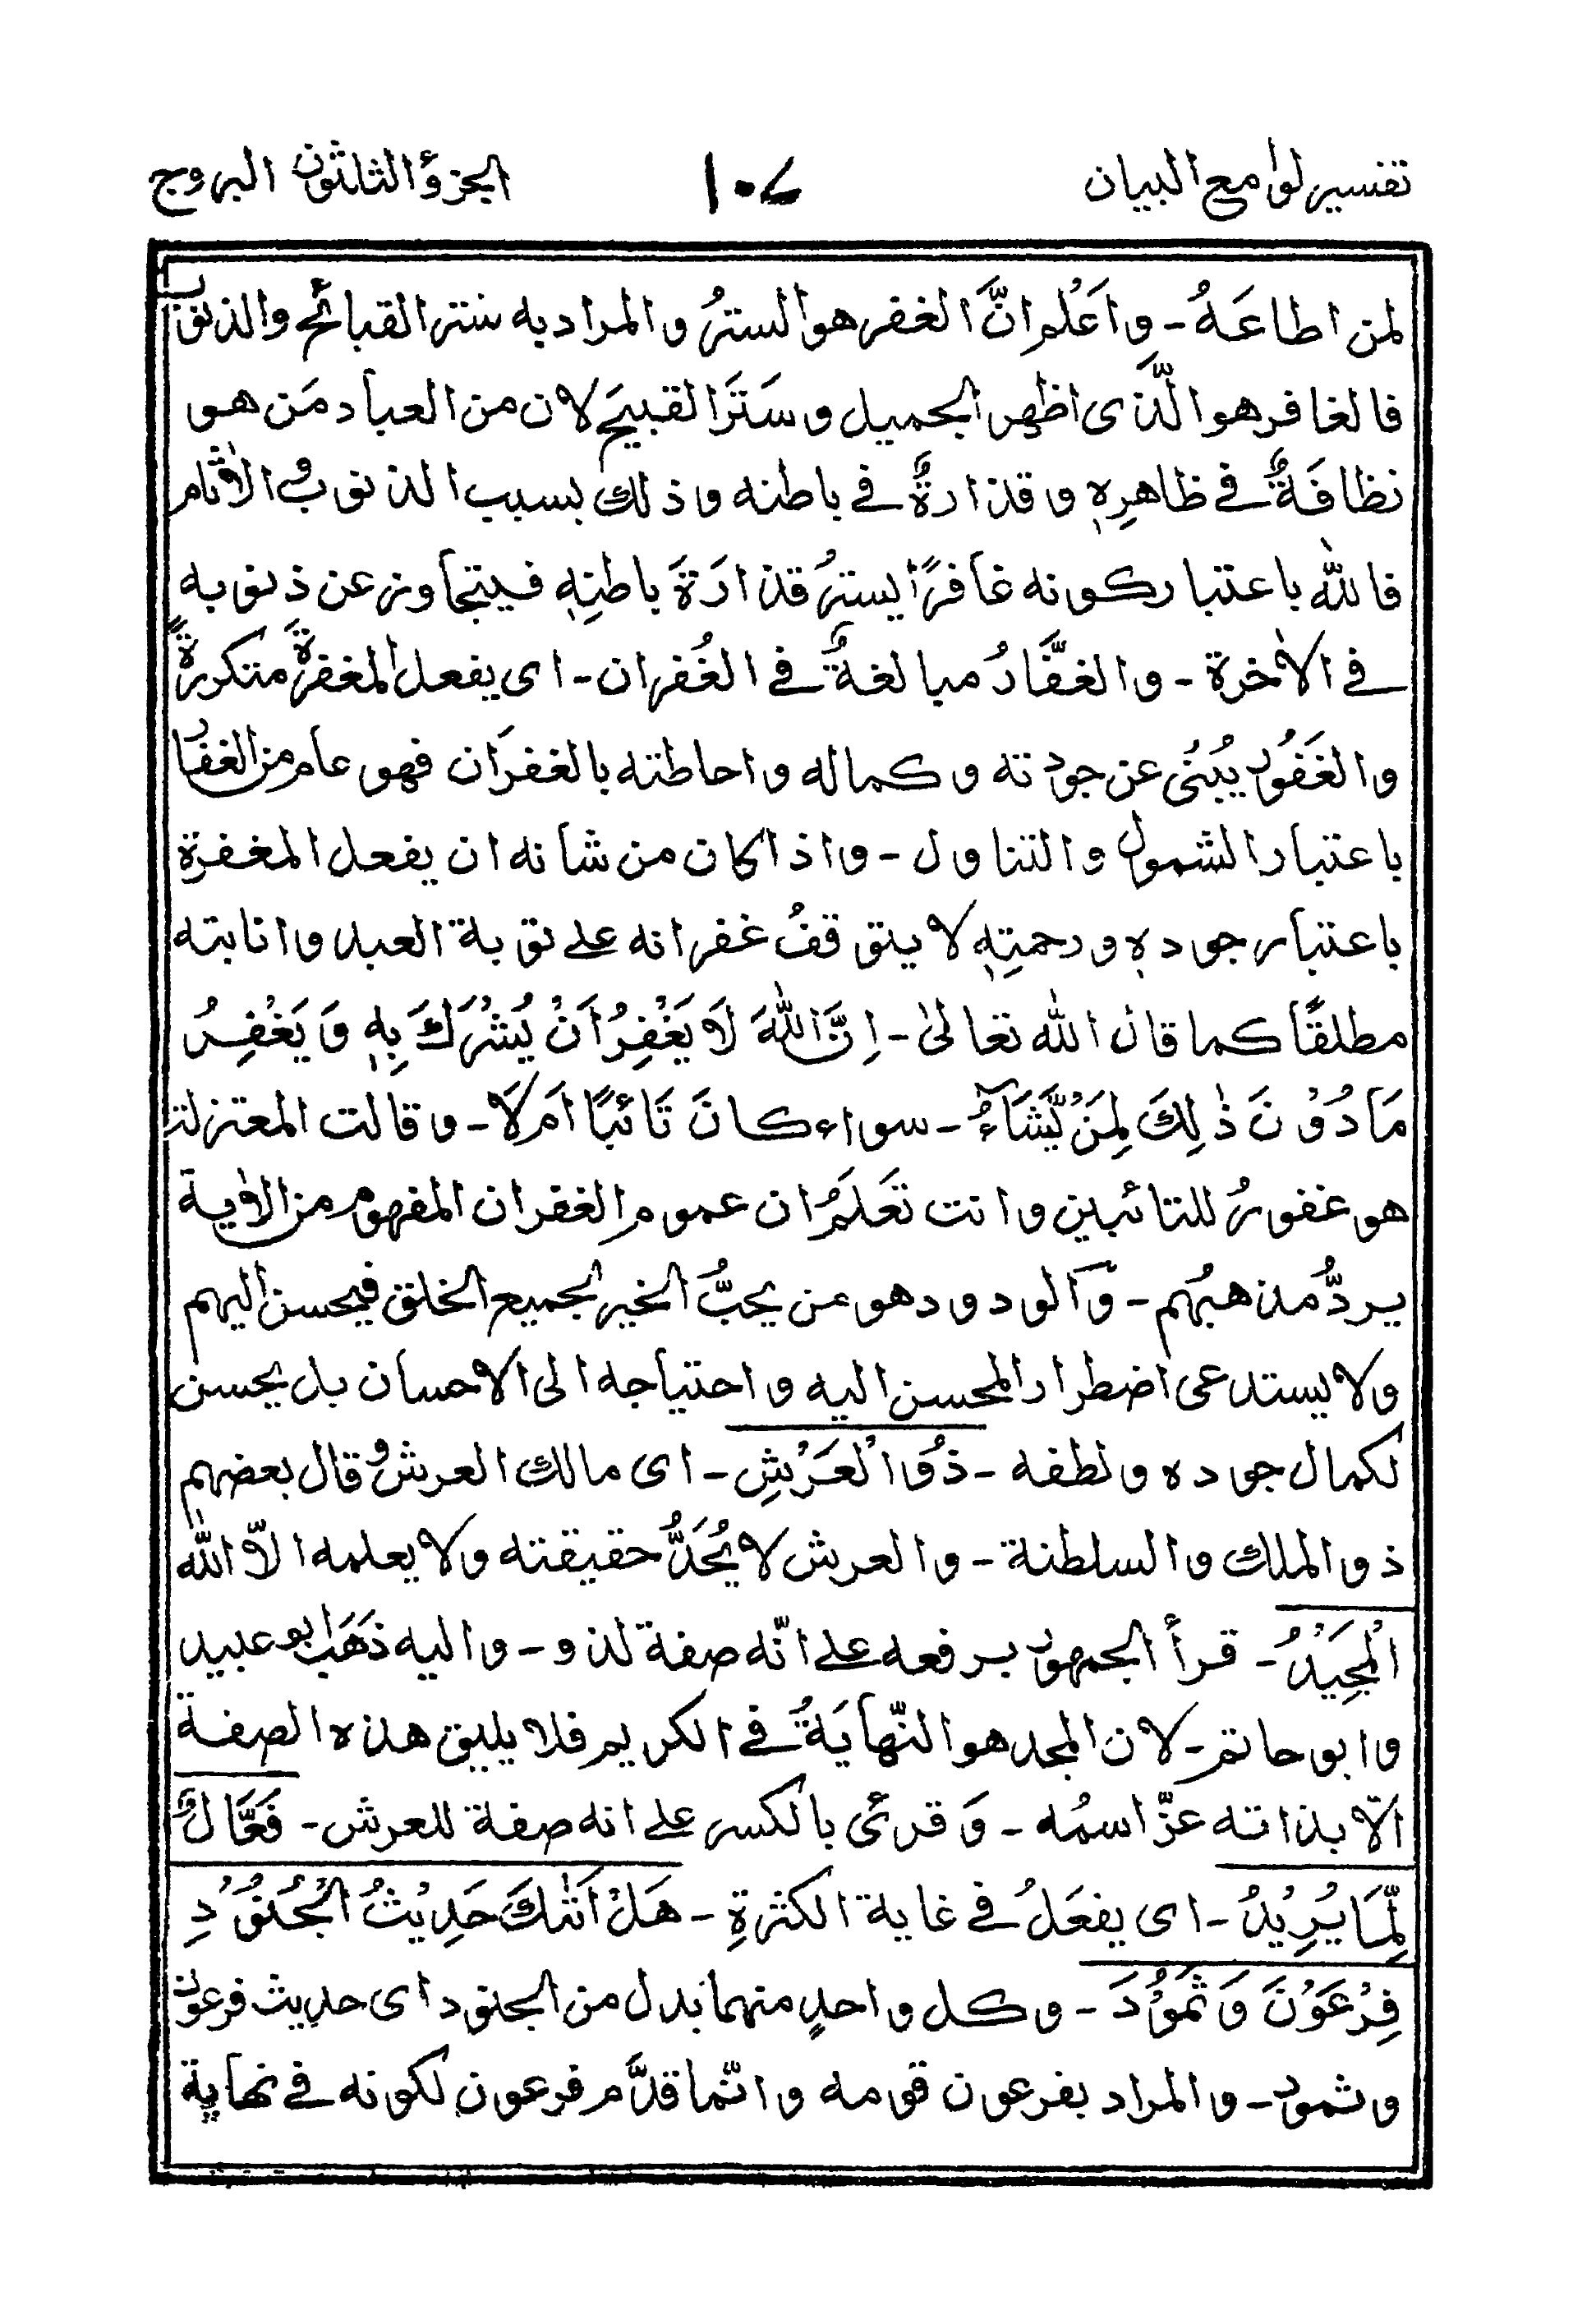 تفسير لوامع البيان ١٠٧ الجزؤ الثلثون البروج
لمن اطاعَهُ - واَعْلم انَّ الغفر هو السترُ والمراد به ستر القبائح والذنوب
فالغافر هو الَّذى اظهر الجميل وسَتَرَ القبيحَ لان من العباد مَن هو
نظافَةٌ فى ظاهرِهٖ وقذارةٌ فى باطنه وذلك بسبب الذنوب والاٰثام
فاللّٰه باعتبار كونه غافرًا يسترُ قذارَةَ باطنِهٖ فيتجاوز عن ذنوبه
فى الاٰخرة - والغفَّارُ مبالغةٌ فى الغُفران - اى يفعل المغفرةَ متكررةً
والغَفُور يُنبئُ عن جودته وكماله واحاطته بالغفرَان فهو عام من الغفار
باعتبار الشمول والتناول - واذا كان من شانه ان يفعل المغفرة
باعتبار جودهٖ ورحمتِهٖ لا يتوقفُ غفرانه على توبة العبد وانابته
مطلقًا كما قال اللّٰه تعالىٰ - اِنَّ اللّٰهَ لَا يَغْفِرُ اَنْ يُّشْرَكَ بِهٖ وَيَغْفِرُ
مَا دُوْنَ ذٰلِكَ لِمَنْ يَّشَآءُ - سواء كانَ تَائبًا اَم لَا - وقالت المعتزلة
هو غفورٌ للتائبين وانت تَعلَمُ ان عموم الغفران المفهوم من الاٰية
يردُّ مذهبُهم - وَالودود هو من يحبُّ الخير لجميع الخلق فيحسن اليهم
ولا يستدعى اضطرار المحسن اليه واحتياجه الى الاحسان بل يحسن
لكمال جوده ولطفه - ذُو الْعَرْشِ - اى مالك العرش وقال بعضهم
ذو الملك والسلطنة - والعرش لا يُحَدُّ حقيقته ولا يعلمه الّا اللّٰه
الْمَجِيْدُ - قرأ الجمهور برفعه على انّه صفة لذو - واليه ذَهَبَ ابو عبيد
وابو حاتم - لان المجد هو النّهايَةُ فى الكريم فلا يليق هذه الصفة
الّا بذاته عزّ اسمُه - وَقرئ بالكسر على انه صفة للعرش - فَعَّالٌ
لِّمَا يُرِيْدُ - اى يفعَلُ فى غاية الكثرةِ - هَلْ اَتٰىكَ حَدِيْثُ الْجُنُوْدِ
فِرْعَوْنَ وَثَمُوْدَ - وكل واحدٍ منهما بدل من الجنود اى حديث فرعون
وثمود - والمراد بفرعون قومه وانّما قدَّم فرعون لكونه فى نهاية